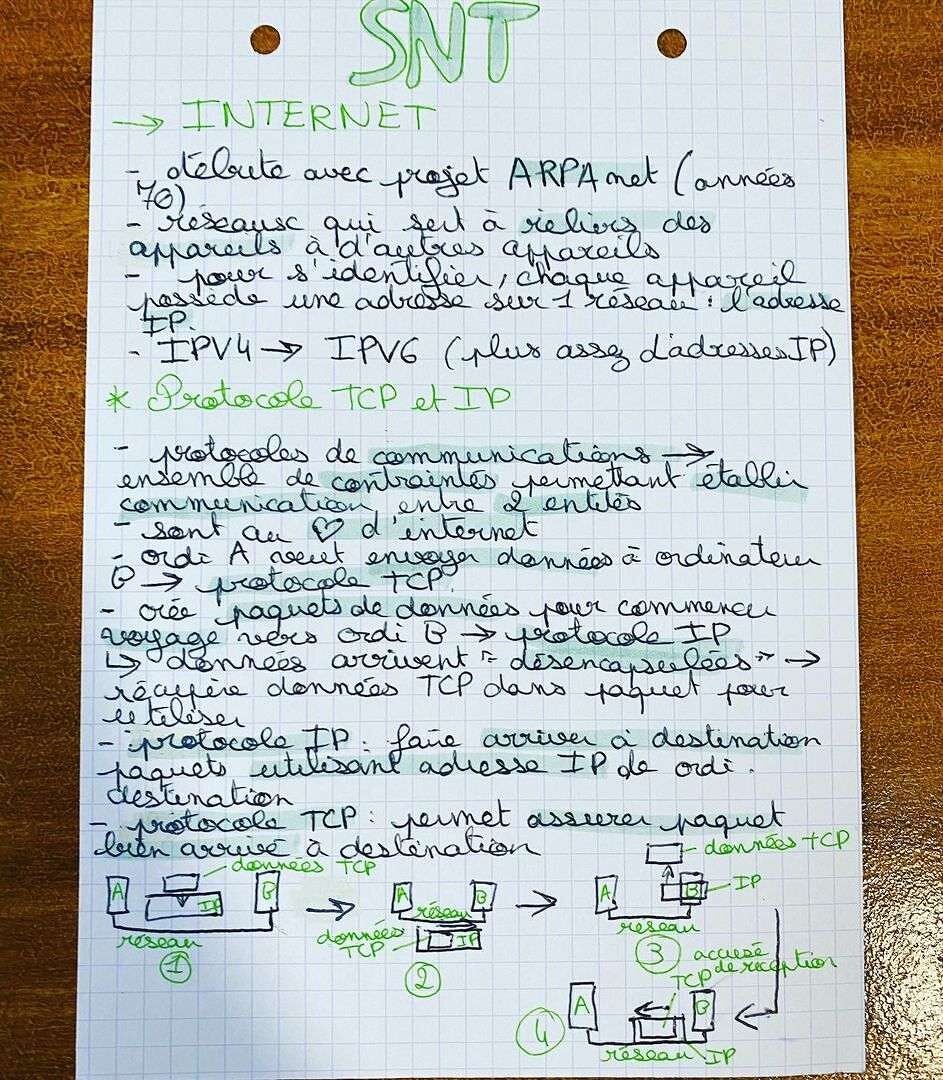 SNT
→ INTERNET
- débute avec projet ARPAnet (années
70)
- réseaux qui sert à reliers des
appareils à d'autres appareils
- pour s'identifier, chaque appareil
possède une adresse sur 1 réseau : l'adresse
IP.
- IPV4 → IPV6 (plus assez d'adresses IP)
* Protocole TCP et IP
- protocoles de communications →
ensemble de contraintes permettant établir
communication entre 2 entités
- sont au ♡ d'internet
- ordi A veut envoyer données à ordinateur
B → protocole TCP.
- crée paquets de données pour commencer
voyage vers ordi B → protocole IP
↳ données arrivent "désencapsulées" →
récupère données TCP dans paquet pour
utiliser
- protocole IP : faire arriver à destination
paquets utilisant adresse IP de ordi.
destination
- protocole TCP : permet assurer paquet
bien arrivé à destination
données TCP
A IP B
réseau
1
A B
réseau
données
TCP IP
2
données TCP
A B IP
réseau
3
accusé
TCP de réception
A B
réseau IP
4